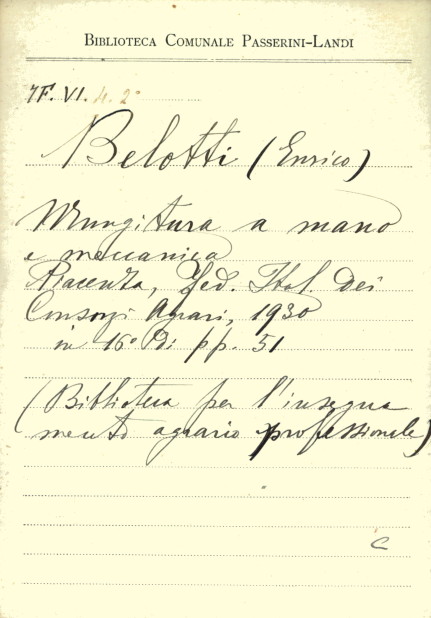 BIBLIOTECA COMUNALE PASSERINI-LANDI
7F. VI. 4. 2°
Belotti (Enrico)
Mungitura a mano
e meccanica
Piacenza, Fed. Ital. dei
Consorzi Agrari, 1930
in 16° di pp. 51
(Biblioteca per l'insegna
mento agrario professionale)
C